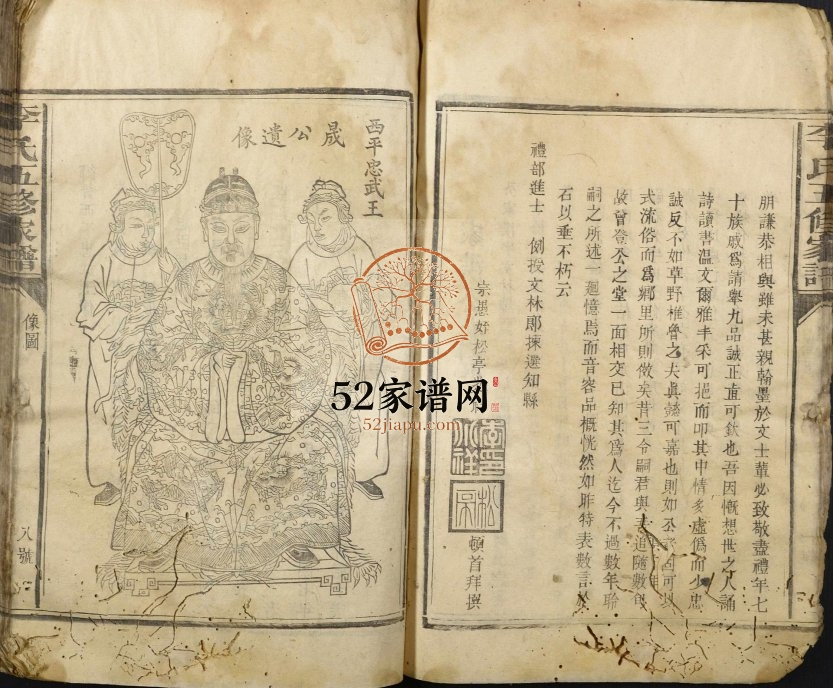 李氏五修家譜
朋謙恭相與雖未甚親翰墨於文士輩必致敬盡禮年七
十族戚爲請舉九品誠正直可欽也吾因慨想世之人誦
詩讀書溫文爾雅丰采可挹而叩其中情多虛僞而少忠
誠反不如草野椎魯之夫眞懿可嘉也則如公者固可以
式流俗而爲鄉里所則傚矣昔三令嗣君與
追隨數
故曾登公之堂一面相交已知其爲人迄今不過數年聆
嗣之所述一廻憶焉而音容品概恍然如昨特表數言於
石以垂不朽云
禮部進士
文林郎揀選知縣
宗愚姪松亭
頓首拜撰
西平忠武王
晟公遺像
李氏五修家譜
像圖
八號
52家谱网
52jiapu.com